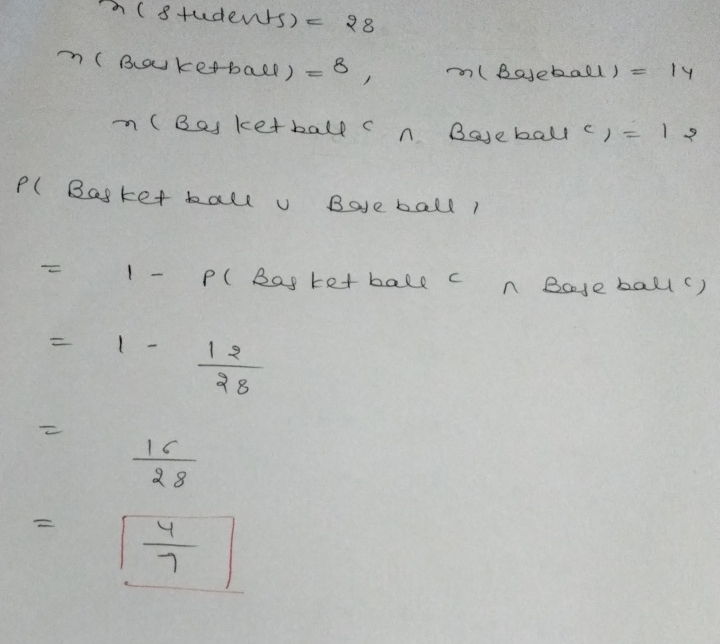 n(students) = 28
n(Basketball) = 8, n(Baseball) = 14
n(Basketball c ∩ Baseball c) = 12
P( Basketball ∪ Baseball )
= 1 - P( Basketball c ∩ Baseball c)
= 1 - 12/28
= 16/28
= 4/7